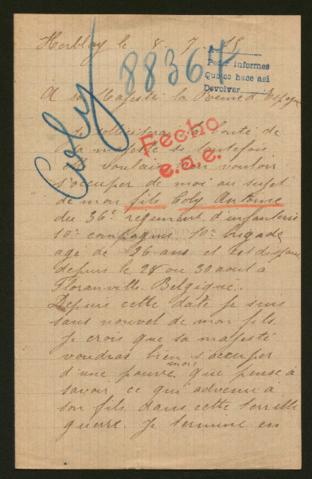 Herblay le 8. 7. 15
A
Pedir informes
Que se hace asi
Devolver
88364
Coly
A sa Majesté la Reine d'Espagne
Je solliciterai la bonté de
sa majesté de
vouloir
s'occuper de moi au sujet
de mon fils Coly Antoine
du 36e régiment d'infanterie
10e compagnie 10e brigade
agé de 26 ans et est disparu
depuis le 28 ou 30 aout a
Floranville Belgique.
Depuis cette date je suis
sans nouvel de mon fils.
Je crois que sa majesté
voudras bien s'occuper
d'une pauvre que pense à
savoir ce qu'advenu a
son fils dans cette terrible
guerre. Je termine en
Fecho
e.a.e.